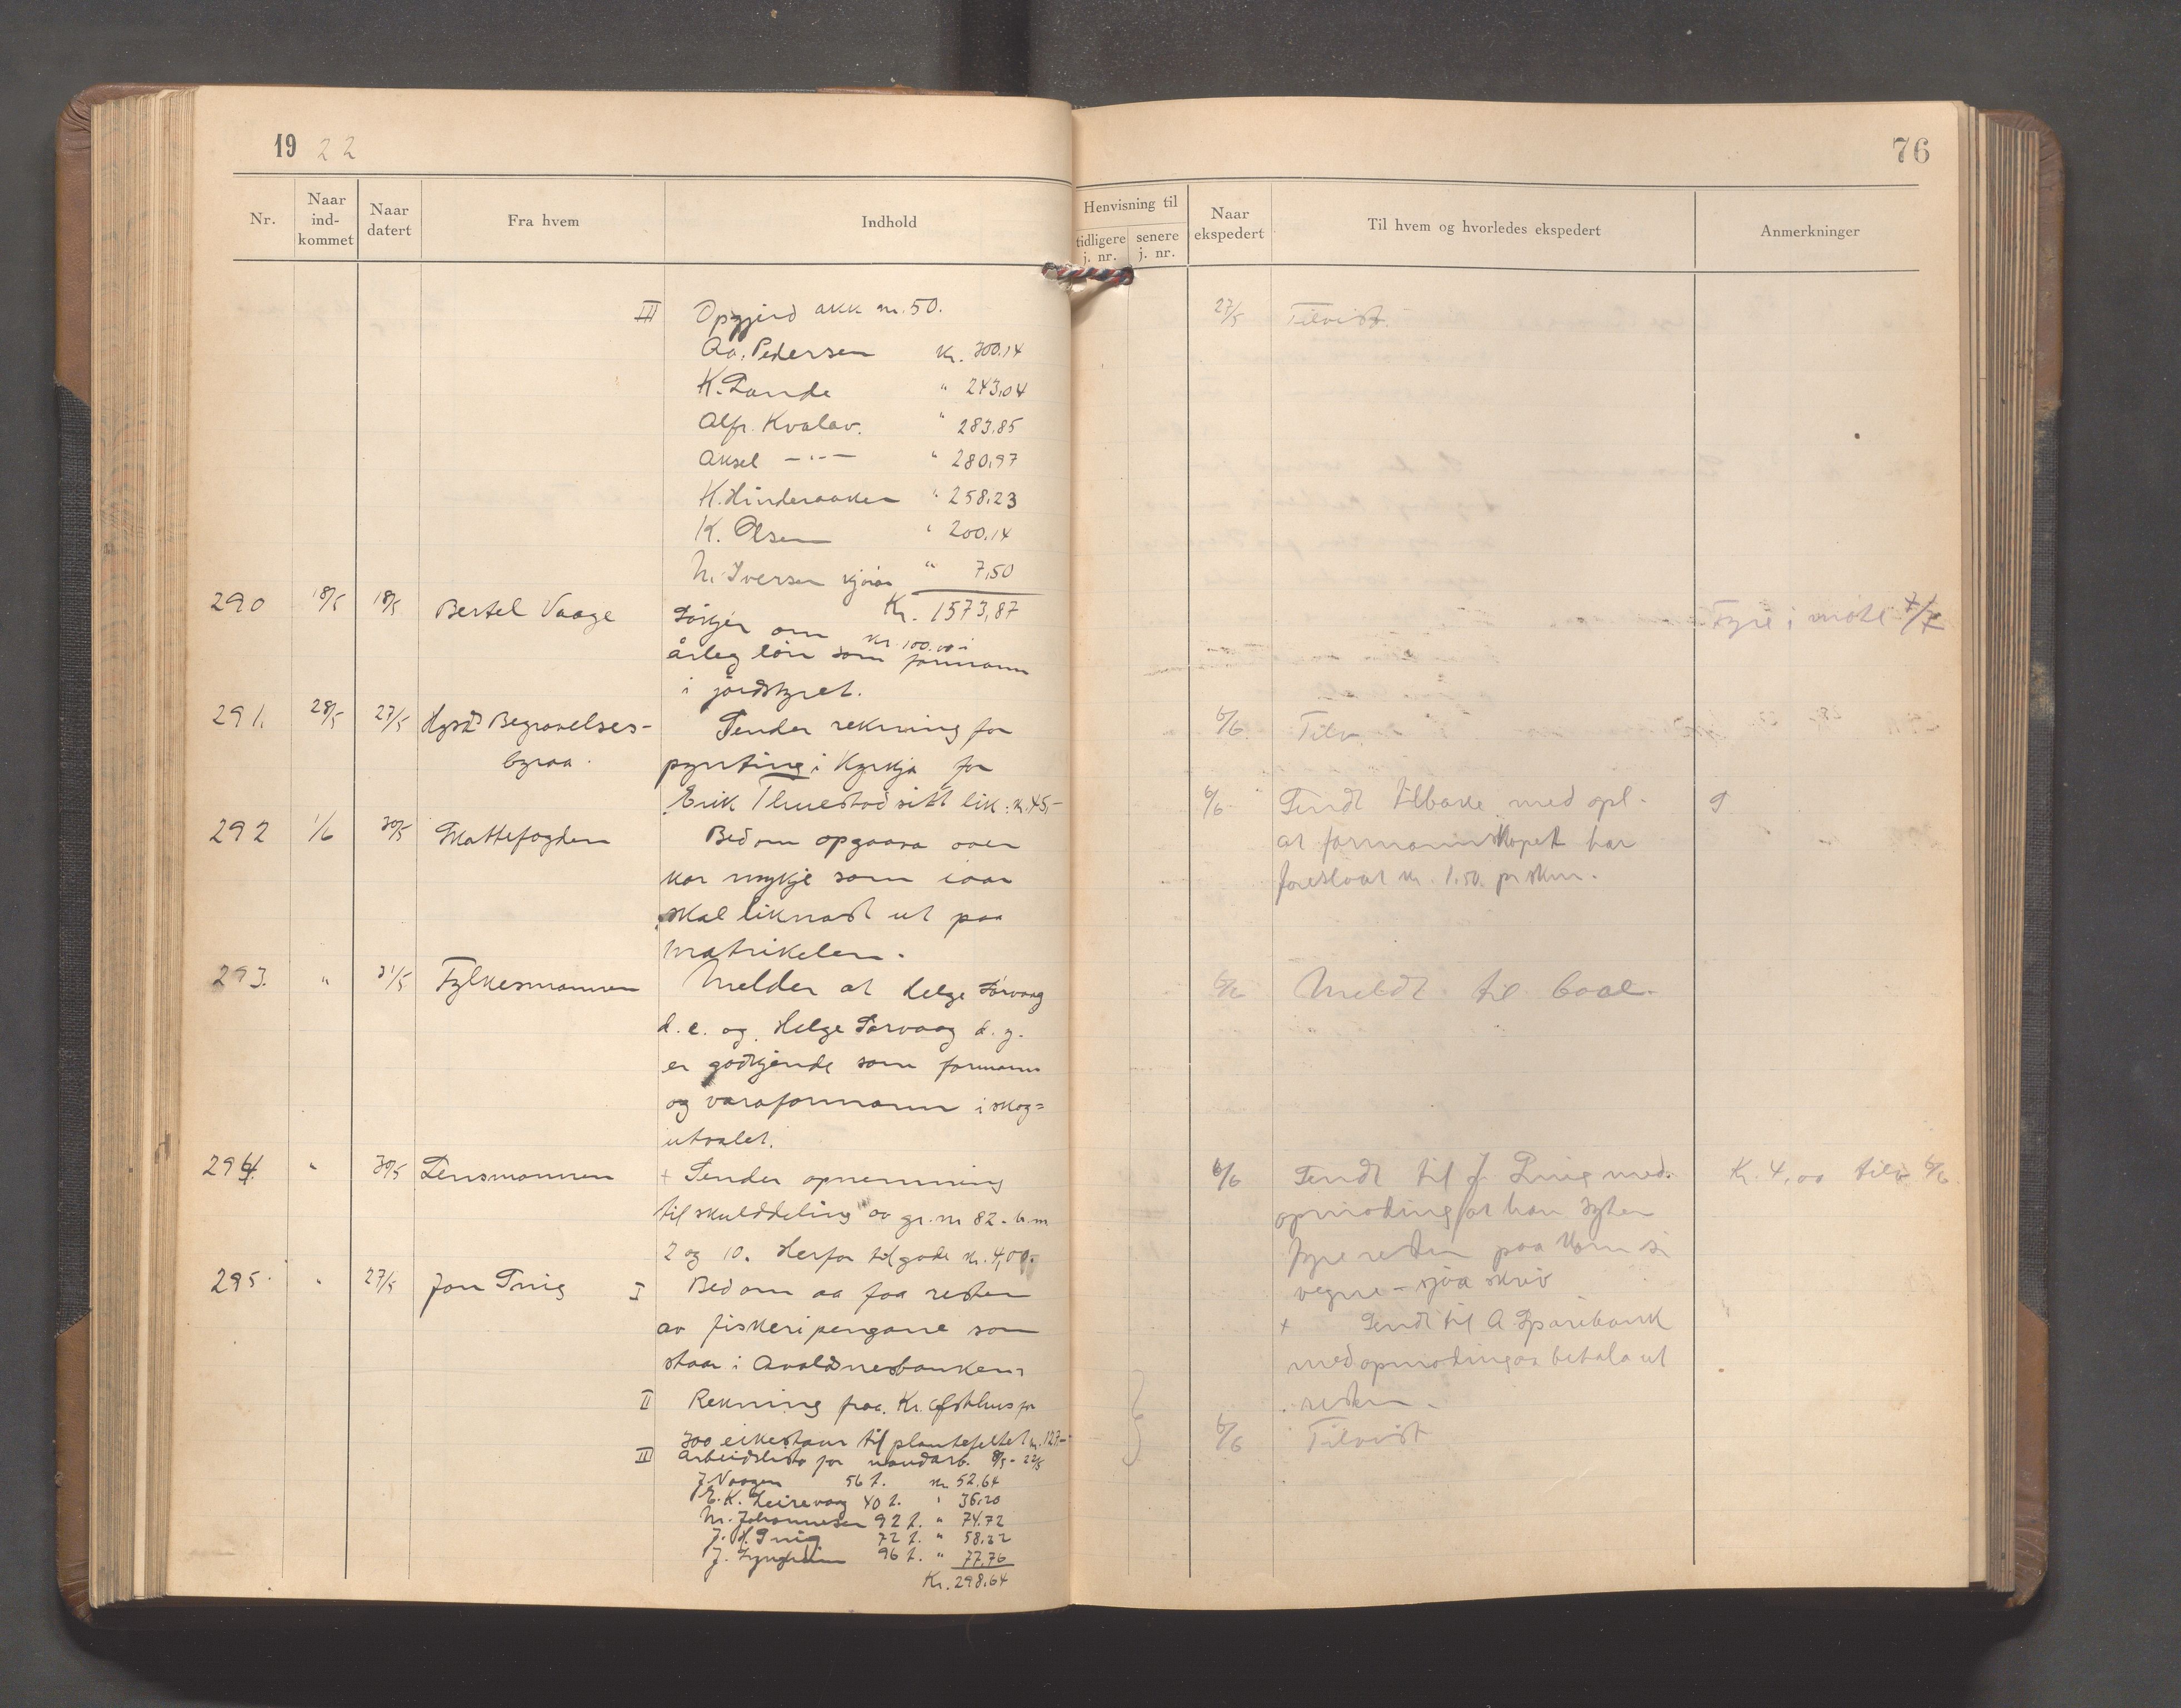 19 22
76
Nr.
Naar ind-kommet
Naar datert
Fra hvem
Indhold
Henvisning til
tidligere j. nr.
senere j. nr.
Naar ekspedert
Til hvem og hvorledes ekspedert
Anmerkninger
III Opgjerd akk nr. 50. 27/5 Tilvist.
Aa. Pedersen Kr. 300.14
K. Sande " 243,04
Alfr. Kvalav. " 283.85
Aksel —"— " 280,97
K. Hinderaaker " 258.23
K. Olsen " 200.14
N. Iversen kjöiar " 7,50
Kr. 1573,87
290 18/5 18/5 Bertel Vaage Sökjer om kr. 100.00 i
årleg lön som formann
i jordstyret.
Fyre i møte 7/7
291. 28/5 27/5 Hgsd. Begravelses-
byraa.
Sender rekning for
pynting i Kyrkja for
Erik Thuestad sitt lik. kr. 45,-
6/6 Tilv.
292 1/6 30/5 Skattefogden Bed om opgaava over
kor mykje som iaar
skal liknast ut paa
matrikelen.
6/6 Sendt tilbake med opl.
at formannskapet har
foreslaat kr. 1.50. pr skm.
293. " 31/5 Fylkesmannen Melder at Helge Sörvaag
d.e. og Helge Sörvaag d.y.
er godkjende som formann
og varaformann i skog-
utvalet.
6/6 Meldt til baae.
294. " 30/5 Lensmannen + Sender opnemning
til skulddeling av gr. nr 82 - br. nr
2 og 10. Herfor tilgode kr. 4,00.
6/6 Sendt til J. Snig med
opmoding at han
paa
vegne - sjaa skriv
Kr. 4,00 tilv 6/6
295. " 27/5 Jon Snig I Bed om aa faa resten
av fiskeripengane som
staar i Avaldsnesbanken.
+ Sendt til A Sparebank
med opmoding aa betala ut
resten.
II Rekning fraa. Kr. Ofsthus for
300 eikestaur til plantefeltet kr. 123.-
III Arbeidslista for naudarb. 8/5 - 22/5
6/6 Tilvist
J. Vaagen 56 t. kr. 52,64
E. K. Leirevaag 40 t. " 35,20
M. Johannesen 92 t. " 74.72
J. H. Snig 72 t. " 58,32
J. Lyngheim 96 t. " 77,76
Kr. 298,64